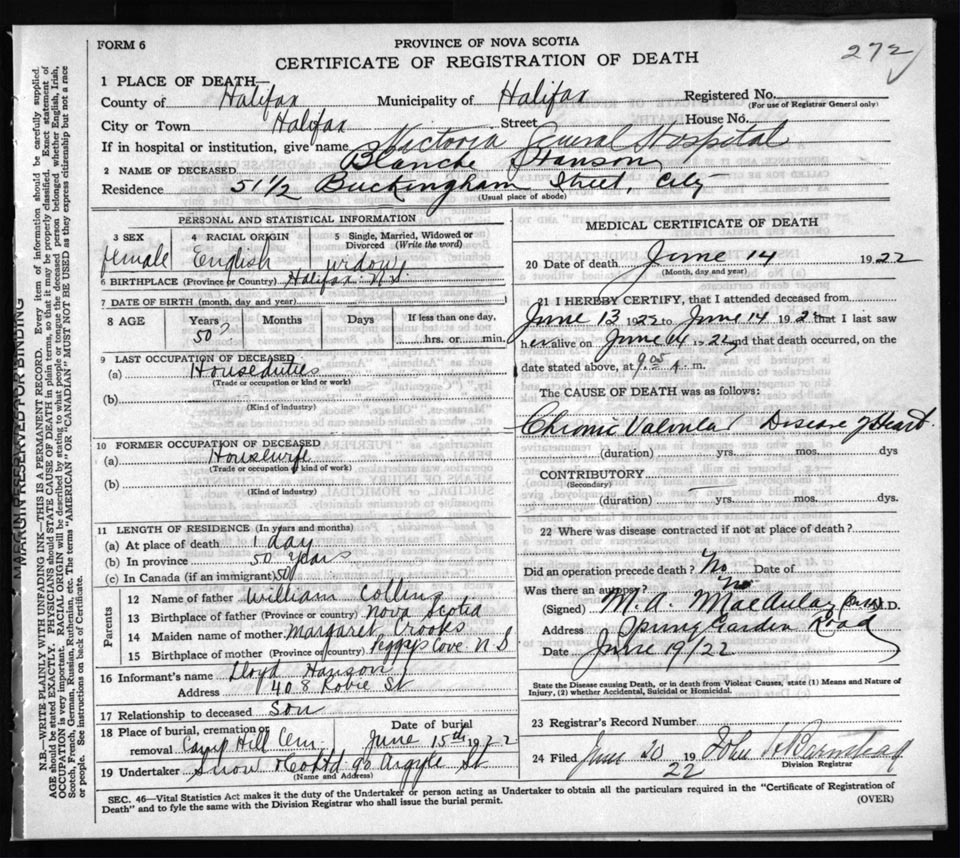 FORM 6
PROVINCE OF NOVA SCOTIA
272
CERTIFICATE OF REGISTRATION OF DEATH
1 PLACE OF DEATH—
County of Halifax Municipality of Halifax Registered No.
(For use of Registrar General only)
City or Town Halifax Street House No.
If in hospital or institution, give name Victoria General Hospital
2 NAME OF DECEASED Blanche Hanson
Residence 51 1/2 Buckingham Street, City
(Usual place of abode)
PERSONAL AND STATISTICAL INFORMATION
3 SEX 4 RACIAL ORIGIN 5 Single, Married, Widowed or Divorced (Write the word)
female English widow
6 BIRTHPLACE (Province or Country) Halifax N.S.
7 DATE OF BIRTH (month, day and year)
8 AGE Years Months Days If less than one day,
50? hrs. or min.
9 LAST OCCUPATION OF DECEASED
(a) House duties
(Trade or occupation or kind or work)
(b)
(Kind of industry)
10 FORMER OCCUPATION OF DECEASED
(a) Housewife
(Trade or occupation or kind or work)
(b)
(Kind of industry)
11 LENGTH OF RESIDENCE (In years and months)
(a) At place of death 1 day
(b) In province 50 years
(c) In Canada (if an immigrant) 50
Parents
12 Name of father William Collins
13 Birthplace of father (Province or country) Nova Scotia
14 Maiden name of mother Margaret Crooks
15 Birthplace of mother (Province or country) Peggys Cove N S
16 Informant's name Lloyd Hanson
Address 408 Robie St
17 Relationship to deceased Son
18 Place of burial, cremation or removal Camp Hill Cem. Date of burial June 15th 1922
19 Undertaker Snow & Co Ltd 90 Argyle St
(Name and Address)
MEDICAL CERTIFICATE OF DEATH
20 Date of death June 14 1922
(Month, day and year)
21 I HEREBY CERTIFY, that I attended deceased from
June 13 1922 to June 14 1922 that I last saw
her alive on June 14 1922 and that death occurred, on the
date stated above, at 9.05 A. m.
The CAUSE OF DEATH was as follows:
Chronic Valvular Disease of Heart.
(duration) yrs. mos. dys
CONTRIBUTORY
(Secondary)
(duration) yrs. mos. dys.
22 Where was disease contracted if not at place of death?
Did an operation precede death? No Date of
Was there an autopsy? No
(Signed) M. A. MacAulay M.D.
Address Spring Garden Road
Date June 19/22
State the Disease causing Death, or in death from Violent Causes, state (1) Means and Nature of Injury, (2) whether Accidental, Suicidal or Homicidal.
23 Registrar's Record Number
24 Filed June 20 1922 John H Barnstead
Division Registrar
SEC. 46—Vital Statistics Act makes it the duty of the Undertaker or person acting as Undertaker to obtain all the particulars required in the "Certificate of Registration of
Death" and to fyle the same with the Division Registrar who shall issue the burial permit.
(OVER)
MARGIN RESERVED FOR BINDING
N.B.—WRITE PLAINLY WITH UNFADING INK—THIS IS A PERMANENT RECORD. Every item of information should be carefully supplied.
AGE should be stated EXACTLY. PHYSICIANS should STATE CAUSE OF DEATH in plain terms, so that it may be properly classified. Exact statement of
OCCUPATION is very important. RACIAL ORIGIN will be described by stating to what people or tongue the deceased person belonged whether English, Irish,
Scotch, French, German, Russian, Ruthenian, etc. The terms "AMERICAN" or "CANADIAN" MUST NOT BE USED as they express citizenship but not a race
or people. See instructions on back of Certificate.